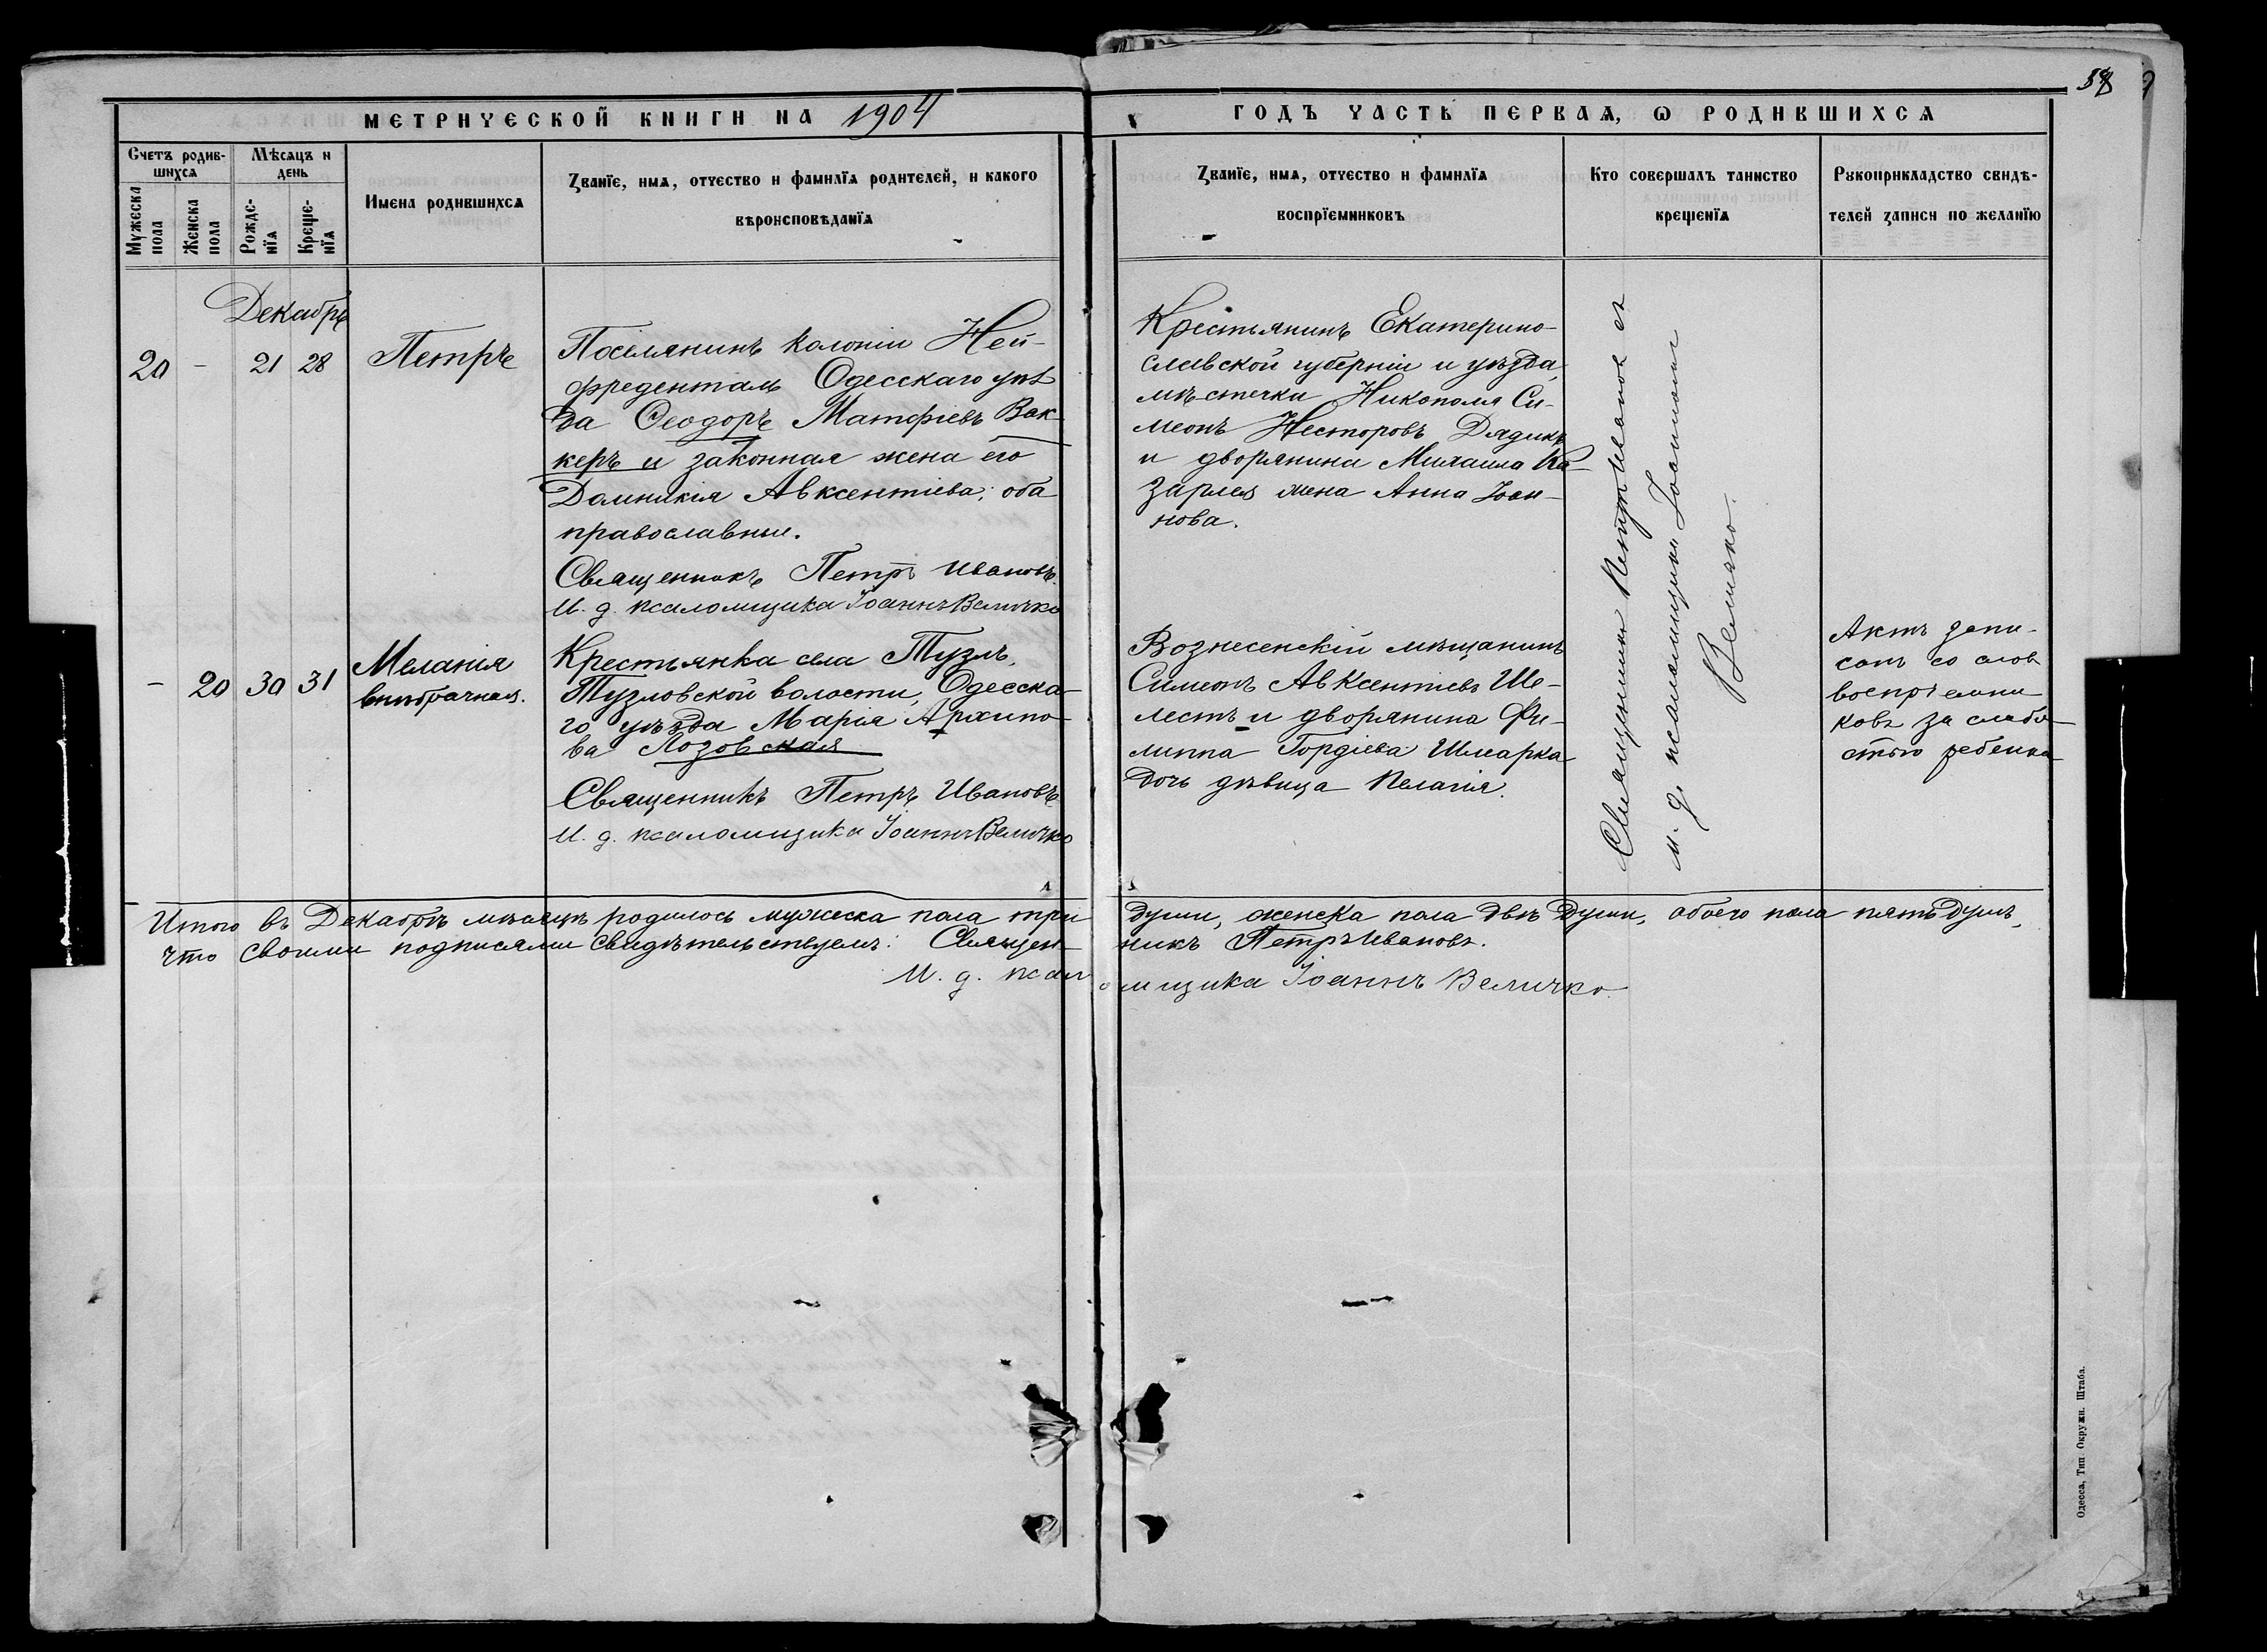 58
МЕТРИЧЕСКОЙ КНИГИ НА 1904
ГОДЪ ЧАСТЬ ПЕРВАѦ, Ѡ РОДИВШИХСѦ
Счетъ родив-
шихсѧ
Мѣсѧцъ и
день
Мужеска
пола
Женска
пола
Рожде-
нїѧ
Креще-
нїѧ
Имена родившихсѧ
Званїе, имѧ, отчество и фамилїѧ родителей, и какого
вѣроисповѣданїѧ
Званїе, имѧ, отчество и фамилїѧ
воспрїемниковъ
Кто совершалъ таинство
крещенїѧ
Рукоприкладство свидѣ-
телей записи по желанїю
Декабрь
20 - 21 28
Петръ
Поселянинъ колоніи Ней-
фреденталь Одесскаго уѣз
да Ѳеодоръ Матфіевъ Вак-
керъ и законная жена его
Домникія Авксентіева; оба
православные.
Священникъ Петръ Ивановъ.
И. д. псаломщика Іоаннъ Величко
Крестьянинъ Екатерино-
славской губерніи и уѣзда,
мѣстечка Никополя Си-
меонъ Несторовъ Дядикъ
и дворянина Михаила Ка-
зарлея жена Анна Іоан-
нова.
Священникъ Петръ Ивановъ съ
и. д. псаломщика Іоанномъ
Величко.
- 20 30 31
Меланія
внѣбрачная.
Крестьянка села Тузлъ,
Тузловской волости, Одесска-
го уѣзда Марія Архипо-
ва Лозовская
Священникъ Петръ Ивановъ
И. д. псаломщика Іоаннъ Величко
Вознесенскій мѣщанинъ
Симеонъ Авксентіевъ Ше-
лестъ и дворянина Фи-
липпа Гордіева Шмарка
дочь дѣвица Пелагія.
Актъ запи-
санъ со словъ
воспріемни-
ковъ за слабо-
стью ребенка
Итого въ Декабрѣ мѣсяцѣ родилось мужеска пола три души, женска пола двѣ души, обоего пола пять душъ,
что своими подписями свидѣтельствуемъ: Священникъ Петръ Ивановъ.
И. д. псаломщика Іоаннъ Величко
Одесса, Тип. Окружн. Штаба.